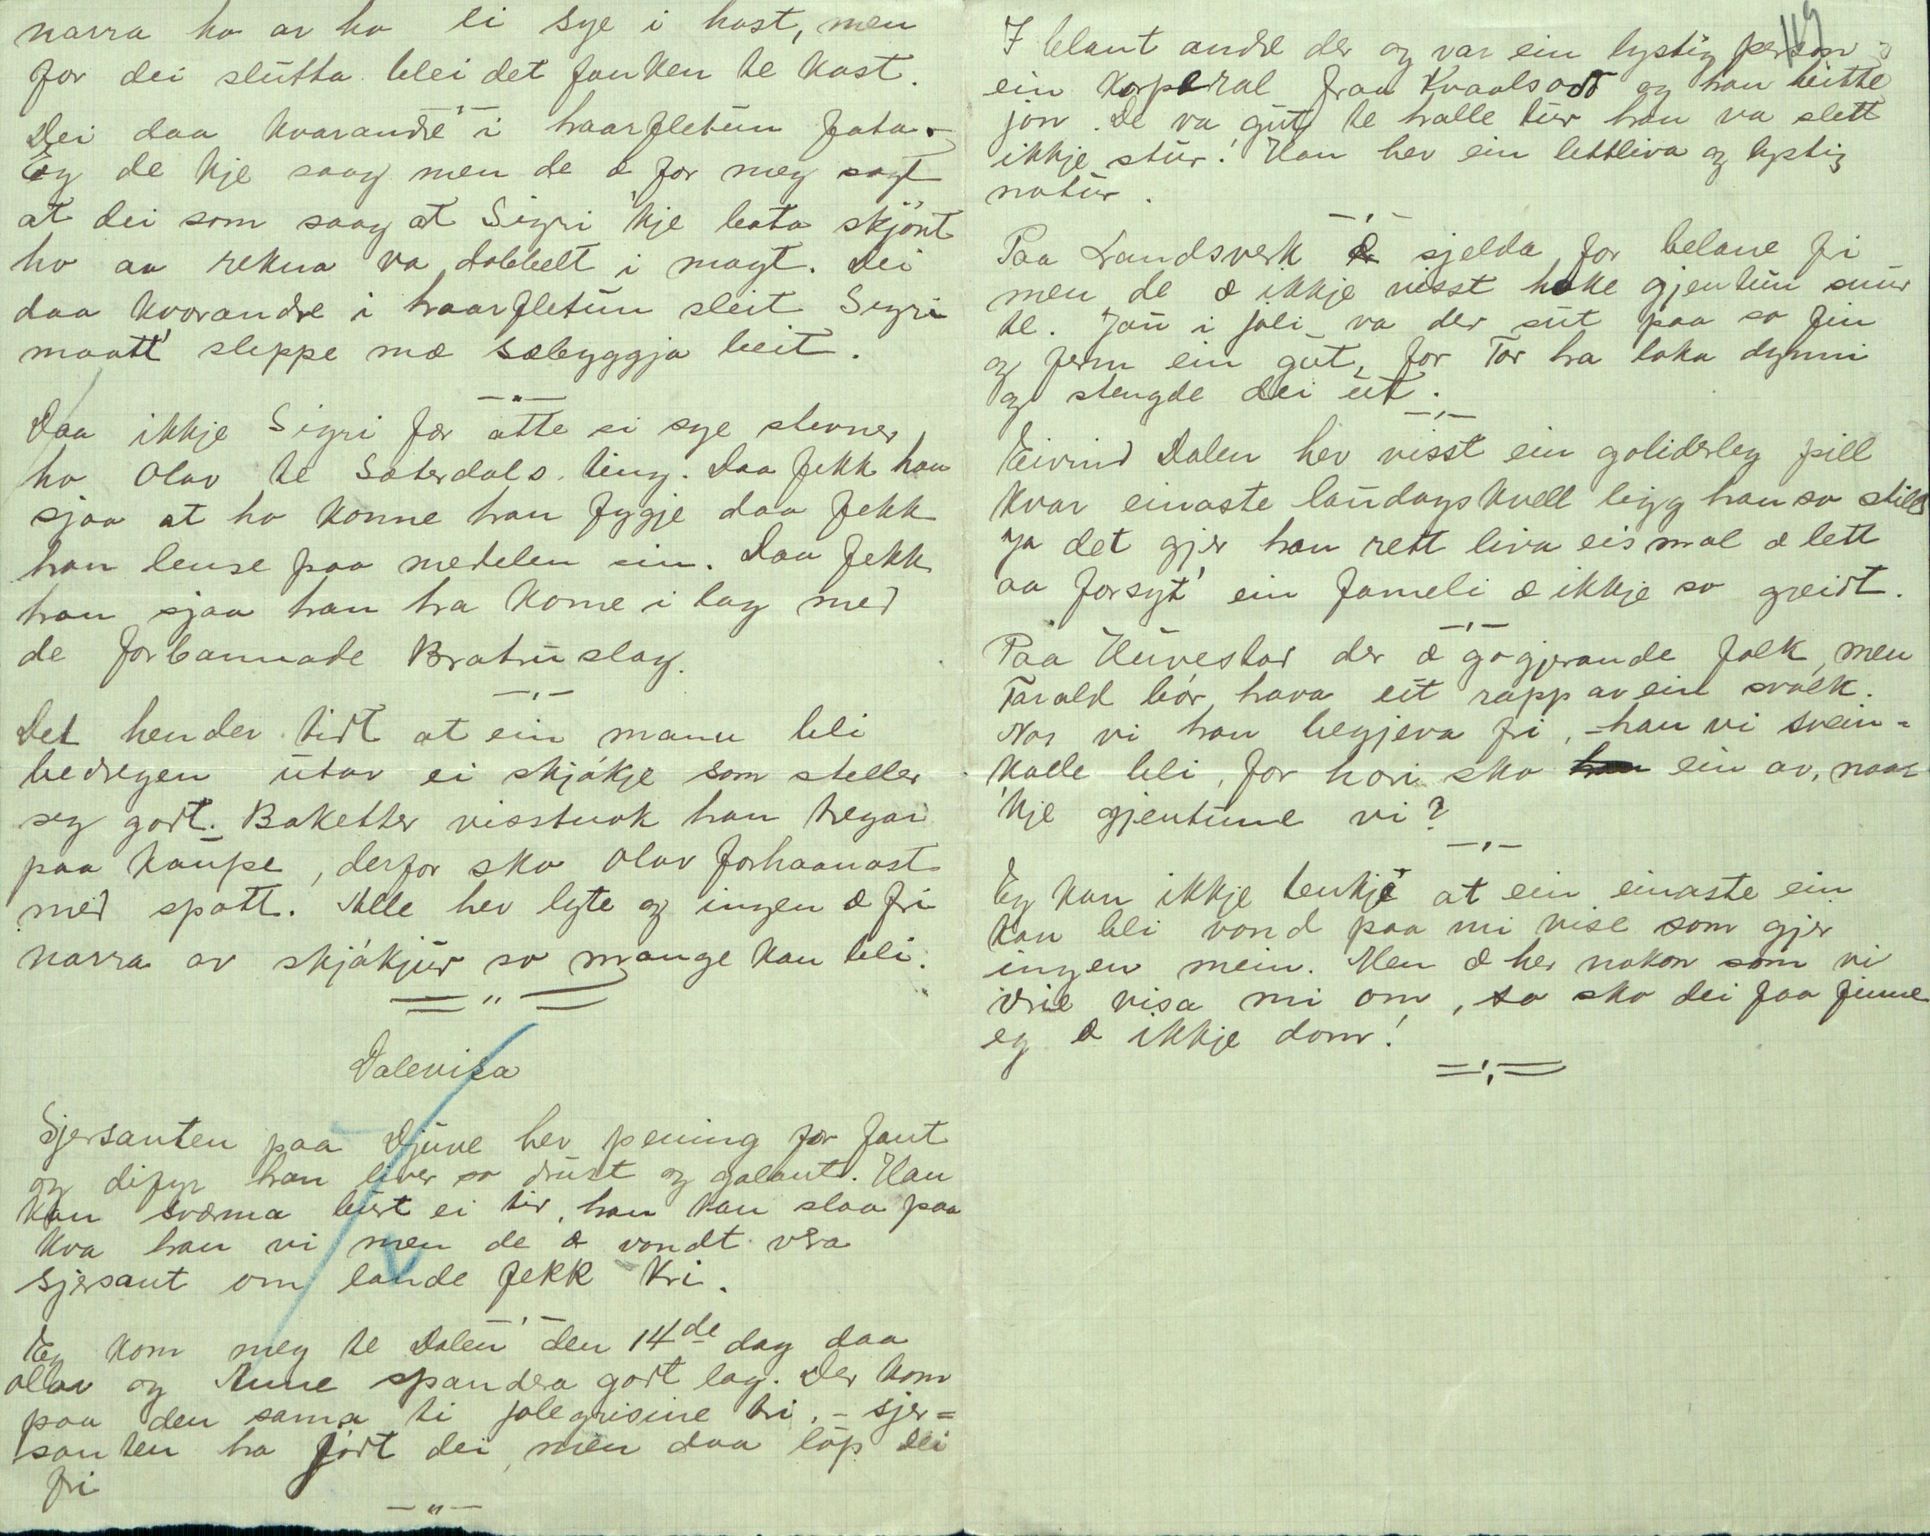 narra ho av ho ei sye i hast, men
for dei slutta blei det fanken te kast.
—„—
Dei daa kvarandre i haarfletun fata.
Eg de kje saag men de æ for meg sagt
at dei som saag at Sigri kje bata skjönt
ho au rekna va dobbelt i magt. Dei
daa kvorandre i haarfletun sleit Sigri
maatt' sleppe mæ sæbyggja beit.
—„—
Daa ikkje Sigri fær atte si sye stevner
ho Olav te Sæterdals ting. Daa fekk han
sjaa at ho konne han fygje daa fekk
han lense paa medelen sin. Daa fekk
han sjaa han ha kome i lag med
de forbannade Bratruslag.
—„—
Det hender tidt at ein mann bli
bedregen utav ei skjákje som steller
seg godt. Baketter visstnok han tregar
paa kaupe, derfor ska Olav forhaanast
med spott. Alle hev lyte og ingen æ fri
narra av skjákjur so mange kan bli.
=„=
Dalevisa
Sjersanten paa Djuve hev pening for fant
og difyr han liver so drust og galant. Han
kan sværma burt ei tir, han kan slaa paa
kva han vi men de æ vondt vera
sjersant om lande fekk kri.
—„—
Eg kom meg te Dalen den 14de dag daa
Olav og Anne spandera godt lag. Der kom
paa den sama ti jolegrisine tri, – sjer=
santen ha fört dei, men daa löp dei
fri
—„—
119
I blant andre der og var ein lystig person
ein korperal fraa Kvaalsodd og han heitte
jon. De va gut te halle tur han va slett
ikkje stur! Han hev ein lettliva og lystig
natur.
—„—
Paa Landsverk æ sjelda for belane fri
men de æ ikkje visst hoke gjentun snur
te. Jau i joli va der sut paa so fin
og ferm ein gut, for Tor ha loka dynni
og stengde dei ut.
—„—
Eivind Dalen hev visst ein goliderleg pill
kvar einaste laudagskvell ligg han so still
ja det gjer han rett liva eismal æ lett
aa forsyt' ein fameli æ ikkje so greidt.
—„—
Paa Huvestad der æ gogjerande folk, men
Tarald bör hava eit rapp av ein svolk.
Nor vi han begjera fri, – han vi svein=
kalle bli, for hori ska ein av, naar
'kje gjentunne vi?
—„—
Eg kan ikkje tenkje at ein einaste ein
kan bli vond paa mi vise som gjer
ingen mein. Men æ her nokon som vi
vrie visa mi om, so ska dei faa finne
eg æ ikkje dom!
=„=